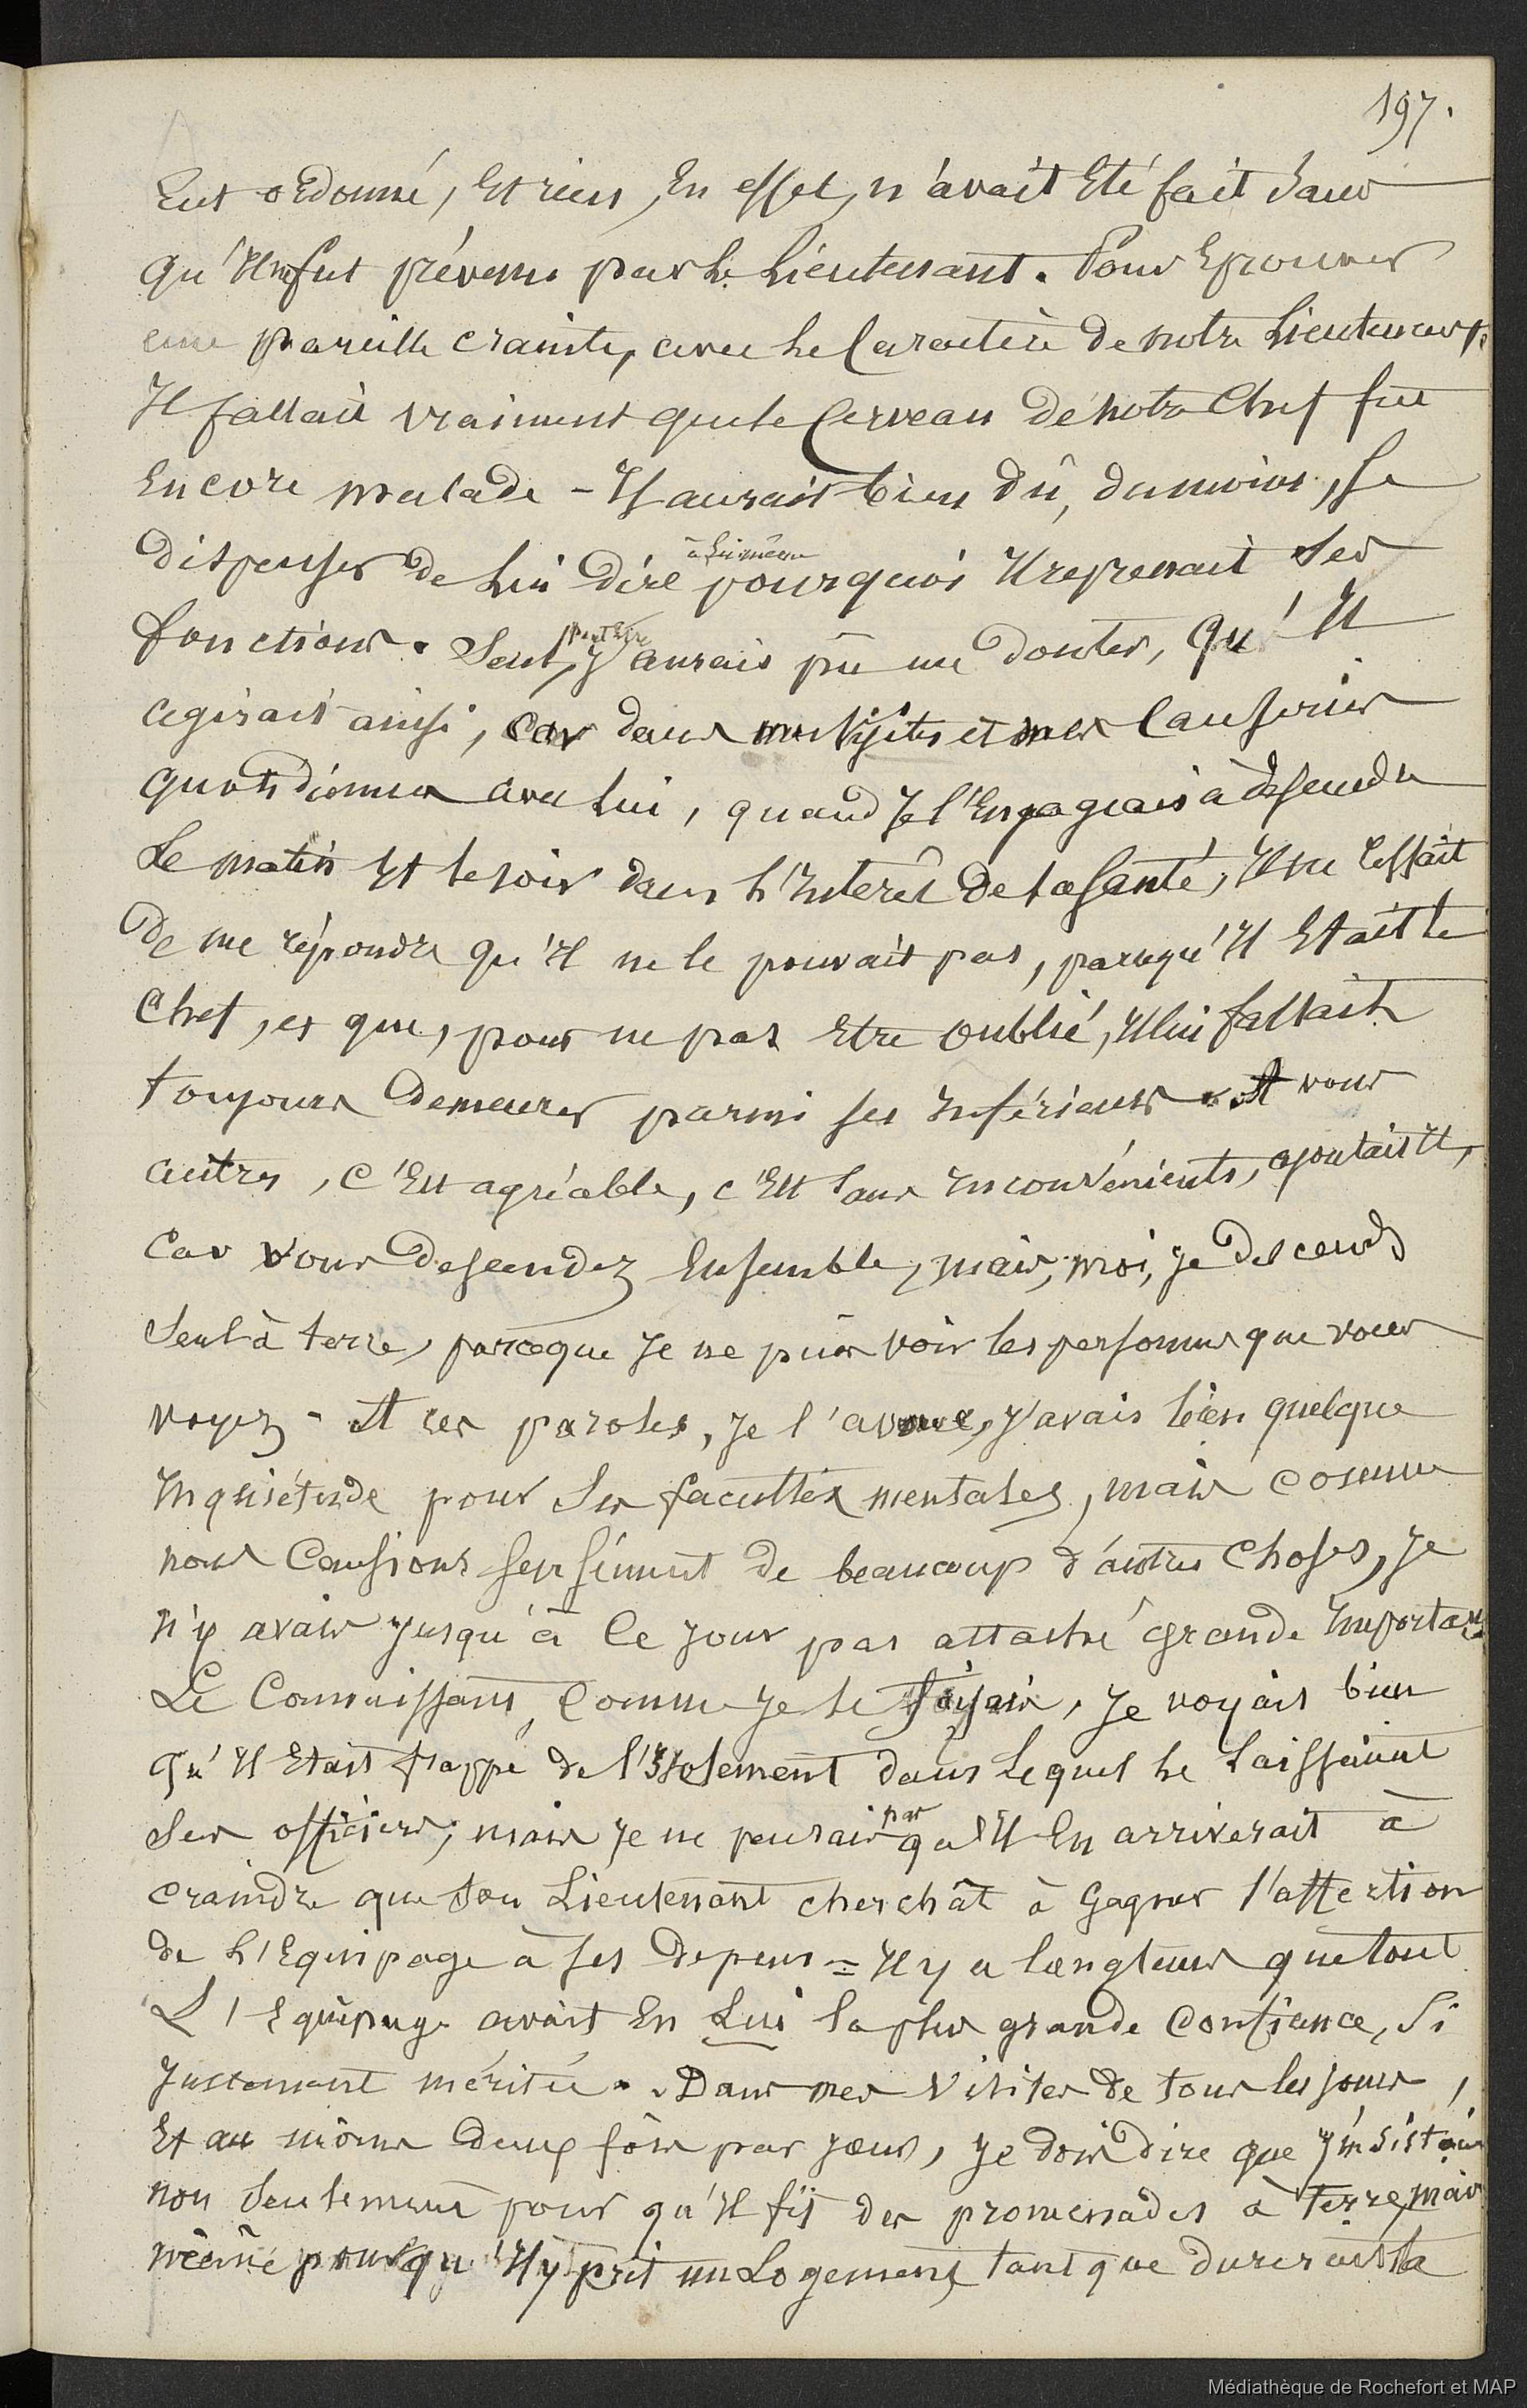 197.
Eut ordonné, Et rien, En effet, n'avait Eté fait sans
qu'Il n'en fut prévenu par le Lieutenant. Pour Eprouver
une pareille crainte, avec le Caractère de notre Lieutenant,
Il fallait vraiment que le Cerveau de notre Chef fut
Encore malade - Il aurait bien dû, du moins, se
dispenser de lui dire à lui même pourquoi Il reprenait ses
fonctions. Seul, peut Etre, j'aurais pû me douter, qu'Il
agirait ainsi, car dans mes visites et mes Causeries
quotidiennes avec lui, quand Je l'Engageais à descendre
Le matin Et le soir dans l'Interêt de sa santé, Il ne Cessait
de me répondre qu'Il ne le pouvait pas, parcequ'Il Etait le
Chef, et que, pour ne pas Etre oublié, Il lui fallait
toujours demeurer parmi ses Inférieurs. A vous
autres, c'Est agréable, c'Est sans Inconvénients, ajoutait Il,
Car vous descendez Ensemble, mais, moi, je descends
Seul à terre, parceque Je ne puis voir les personnes que vous
voyez - A ces paroles, Je l'avoue, J'avais bien quelque
Inquiétude pour ses facultés mentales, mais comme
nous Causions sensément de beaucoup d'autres Choses, Je
n'y avais Jusqu'à Ce Jour pas attaché grande Importance
Le Connaissant, Comme Je le fesais, Je voyais bien
qu'Il Etait frappé de l'Isolement dans Lequel le Laissaient
Ses officiers; mais Je ne pensais pas qu'Il En arriverait à
craindre que Son Lieutenant cherchât à Gagner l'affection
de L'Equipage à ses depens = Il y a longtems que tout
L'Equipage avait En Lui la plus grande Confiance, Si
Justement méritée. Dans mes Visites de tous les jours,
Et au moins deux fois par Jour, Je dois dire que J'insistais
non Seulement pour qu'Il fît des promenades à Terre, mais
même pour qu'Il y prit un Logement, tant que durerait la
Médiathèque de Rochefort et MAP